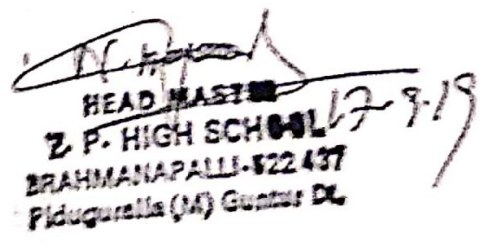 HEAD MASTER
Z. P. HIGH SCHOOL 17-9-19
BRAHMANAPALLI-522 437
Piduguralla (M) Guntur Dt.